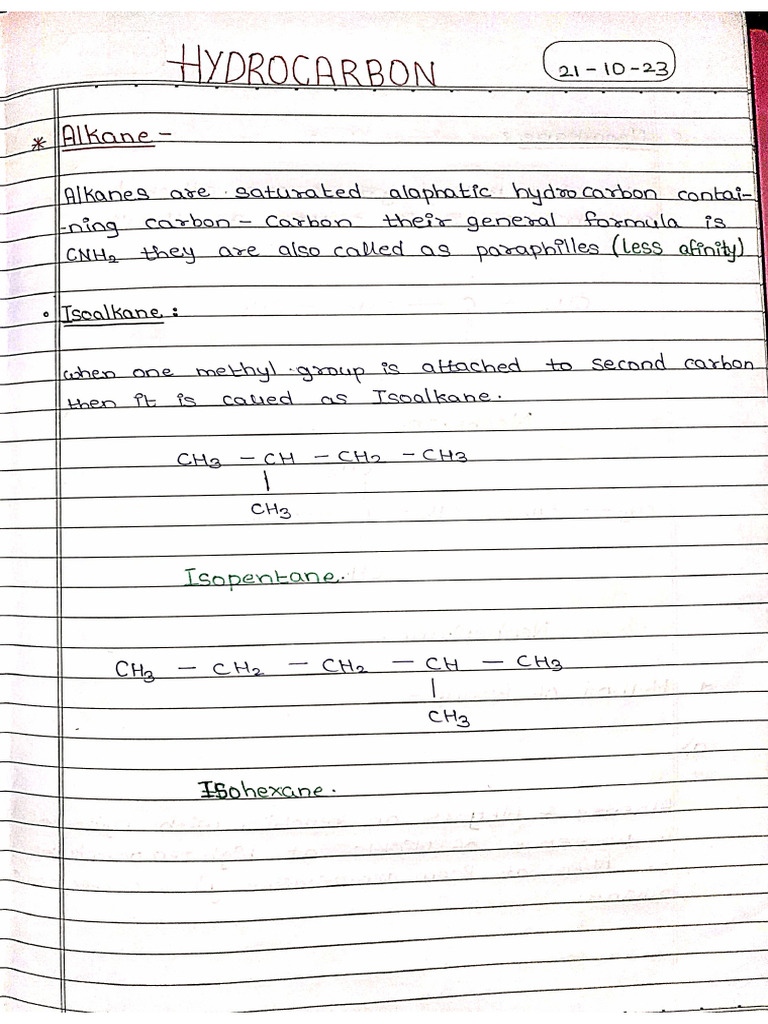 HYDROCARBON
21-10-23
* Alkane -
Alkanes are saturated alaphatic hydrocarbon contai-
-ning carbon - Carbon their general formula is
CNH2 they are also called as paraphilles (less afinity)
• Isoalkane :
when one methyl group is attached to second carbon
then it is called as Isoalkane.
CH3 - CH - CH2 - CH3
|
CH3
Isopentane.
CH3 - CH2 - CH2 - CH - CH3
|
CH3
Isohexane.